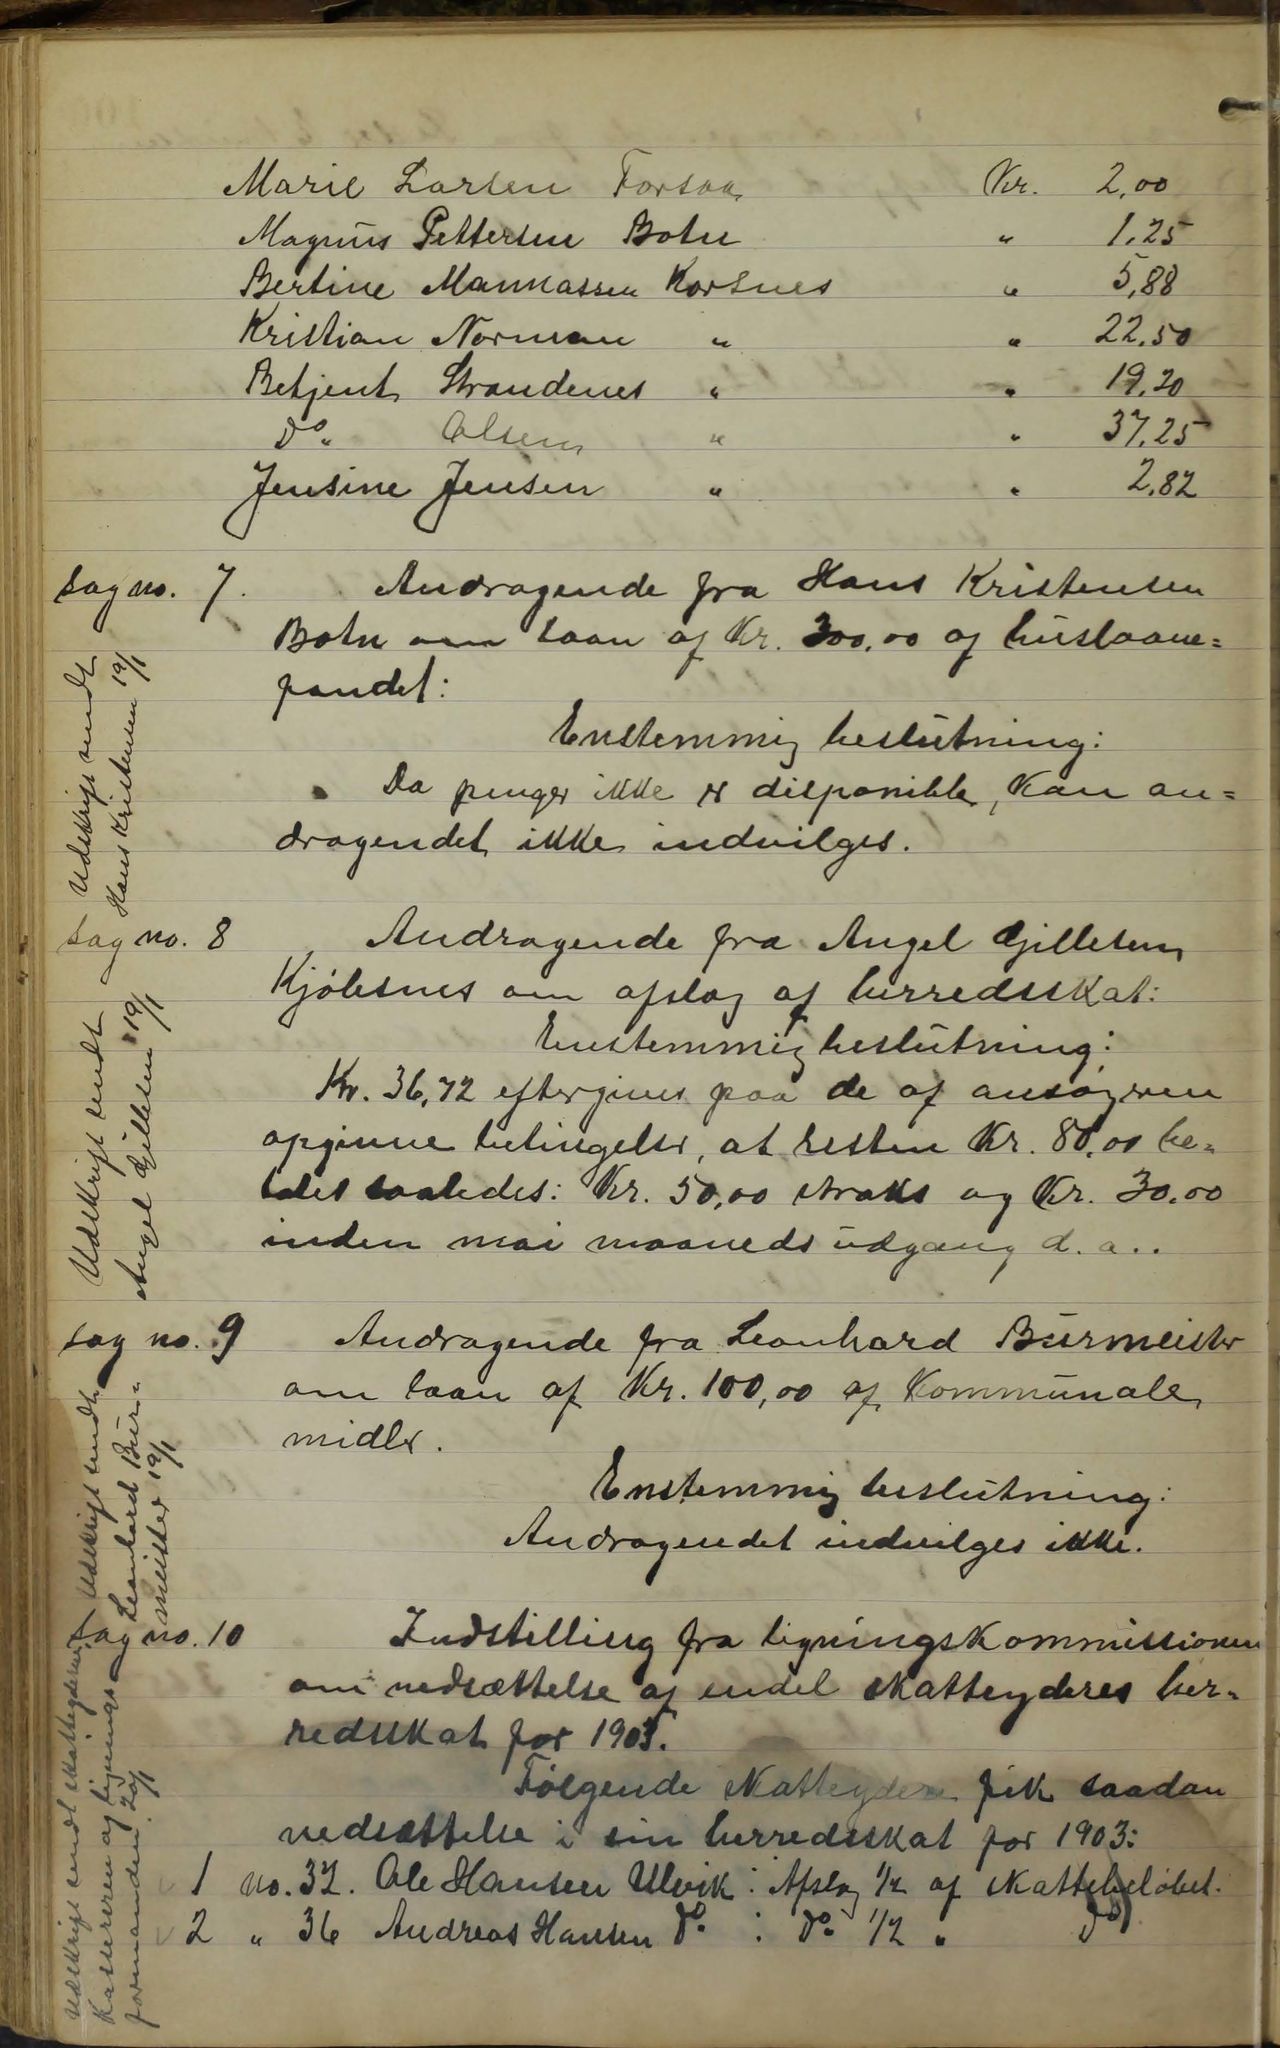 Marie Larsen Forsaa Kr. 2,00
Magnus Pettersen Botn " 1,25
Bertine Mannassen Korsnes " 5,88
Kristian Norman " " 22,50
Betjent Strandenes " " 19,20
Do. Olsen " " 37,25
Jensine Jensen " " 2,82
Sag no. 7. Andragende fra Hans Kristensen
Botn om laan af Kr. 300,00 af huslaane=
fondet:
Enstemmig beslutning:
Da penger ikke er disponible, kan an=
dragendet ikke indvilges.
Udskrift sendt
Hans Kristensen 19/1
Sag no. 8 Andragende fra Angel Gjilletsen
Kjöbsnes om afslag af herredsskat:
Enstemmig beslutning:
Kr. 36,72 eftergives paa de af ansögeren
opgivne betingelser, at resten Kr. 80,00 be=
tales saaledes: Kr. 50,00 straks og Kr. 30,00
inden mai maaneds udgang d. a..
Udskrift sendt
Angel Gjilletsen 19/1
Sag no. 9 Andragende fra Leonhard Burmeister
om laan af Kr. 100,00 af kommunale
midler.
Enstemmig beslutning:
Andragendet indvilges ikke.
Udskrift sendt
Leonhard Bur=
meister 19/1
Sag no. 10 Indstilling fra ligningskommissionen
om nedsættelse af endel skatteyderes her=
redsskat for 1903.
Følgende skatteydere fik saadan
nedsættelse i sin herredsskat for 1903:
1 no. 37. Ole Hansen Ulvik: Afslag 1/2 af skattebeløbet.
2 " 36 Andreas Hansen Do. : Do. 1/2 " Do.
Udskrift sendt skatteyderne,
kassereren og lignings=
formanden 20/1